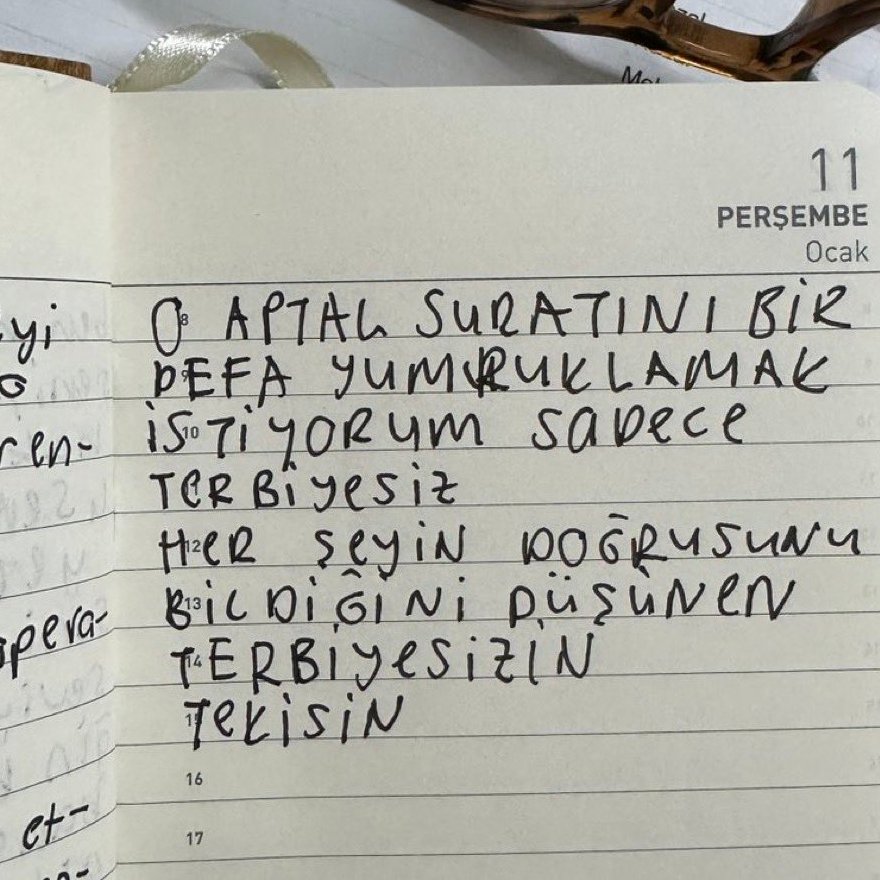 11
PERŞEMBE
Ocak
yi
8 O APTAL SURATINI BİR
DEFA YUMRUKLAMAK
ren-
10 İSTİYORUM SADECE
TERBİYESİZ
12 HER ŞEYİN DOĞRUSUNU
13 BİLDİĞİNİ DÜŞÜNEN
opera-
14 TERBİYESİZİN
TEKİSİN
16
et-
17